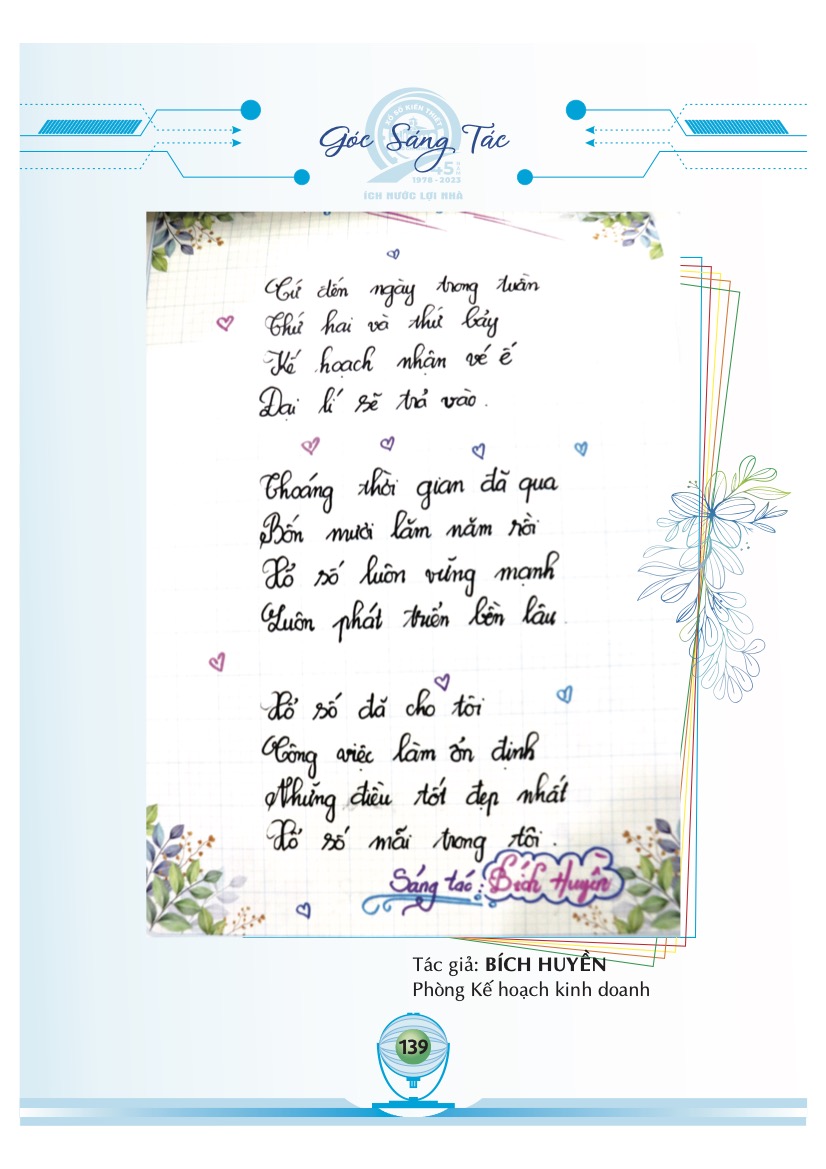 XỔ SỐ KIẾN THIẾT
Góc Sáng Tác
45 NĂM
1978 - 2023
ÍCH NƯỚC LỢI NHÀ
Cứ đến ngày trong tuần
Thứ hai và thứ bảy
Kế hoạch nhận vé ế
Đại lí sẽ trả vào.
Thoáng thời gian đã qua
Bốn mươi lăm năm rồi
Xổ số luôn vững mạnh
Luôn phát triển bền lâu.
Xổ số đã cho tôi
Công việc làm ổn định
Những điều tốt đẹp nhất
Xổ số mãi trong tôi.
Sáng tác: Bích Huyền
Tác giả: BÍCH HUYỀN
Phòng Kế hoạch kinh doanh
139